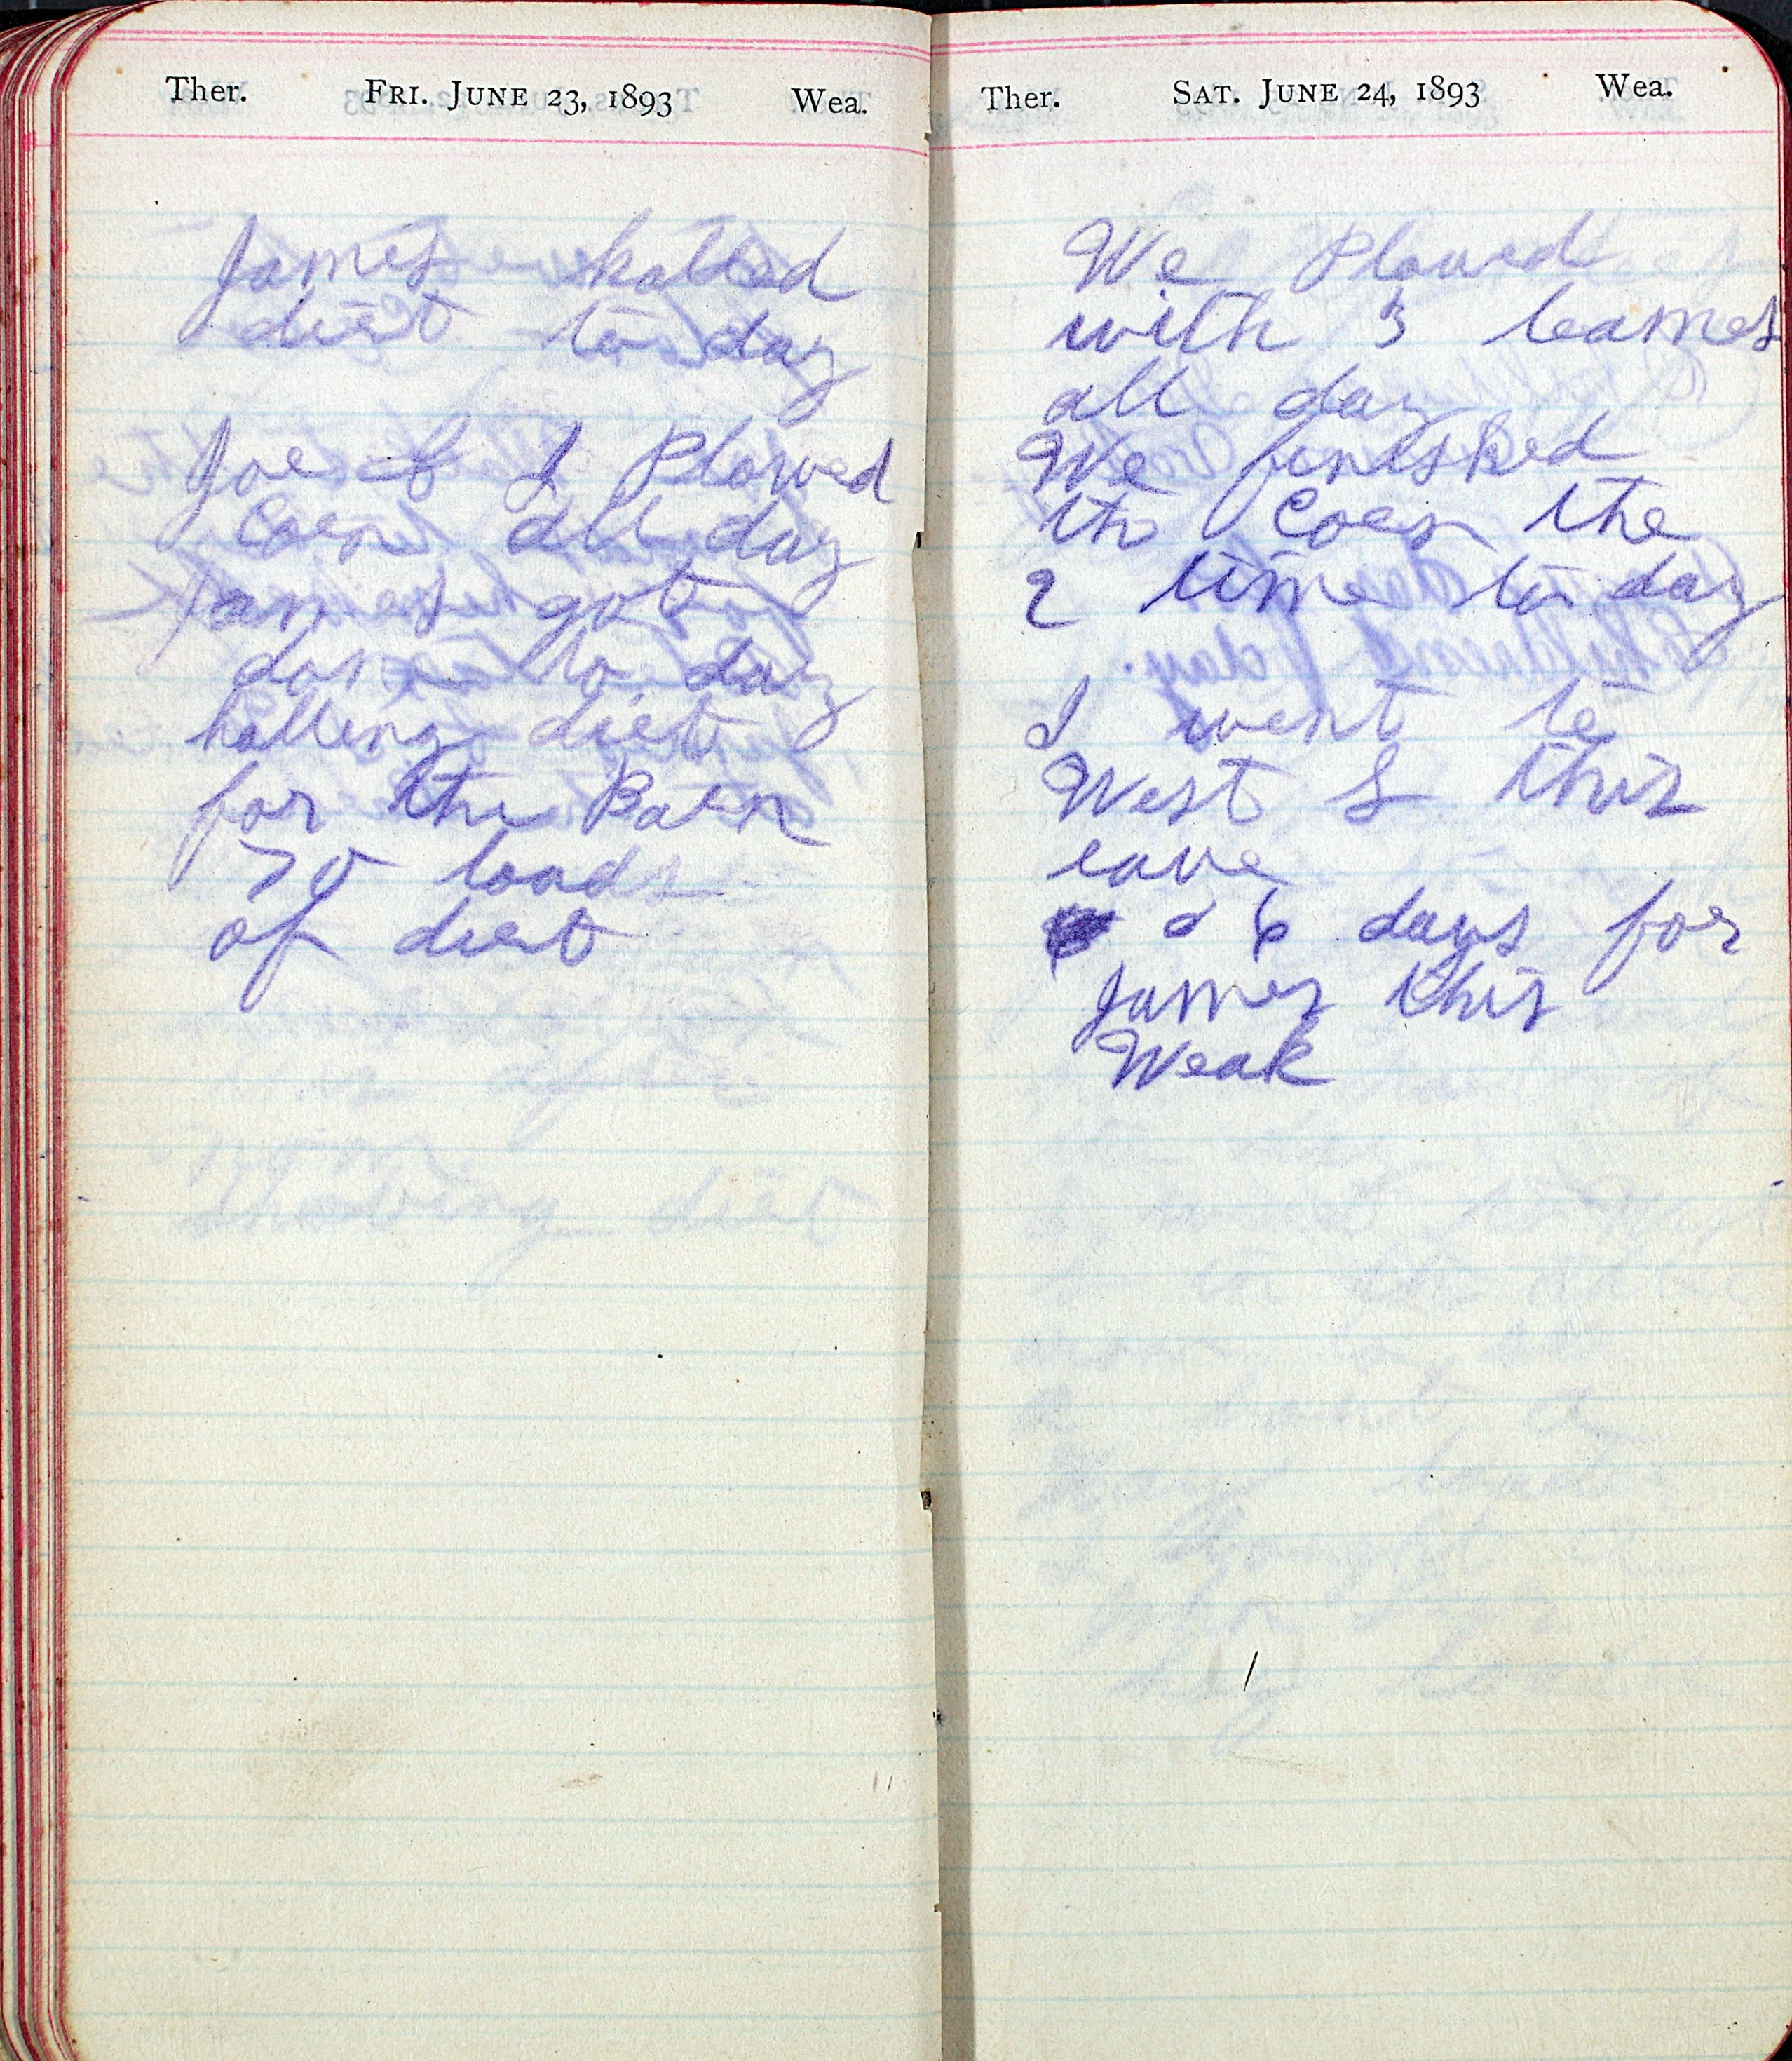 Ther. FRI. JUNE 23, 1893 Wea.
James halled
dirt to day
Joe & I Plowed
Corn all day
James got
done to day
halling dirt
for the Barn
70 loads
of dirt
Ther. SAT. JUNE 24, 1893 Wea.
We Plowed
with 3 teames
all day
We finished
th Corn the
2 time to day
I went to
West L this
eave
6 days for
James this
Weak